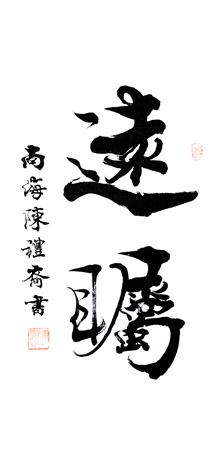 遠矚
南海陳禮齋書